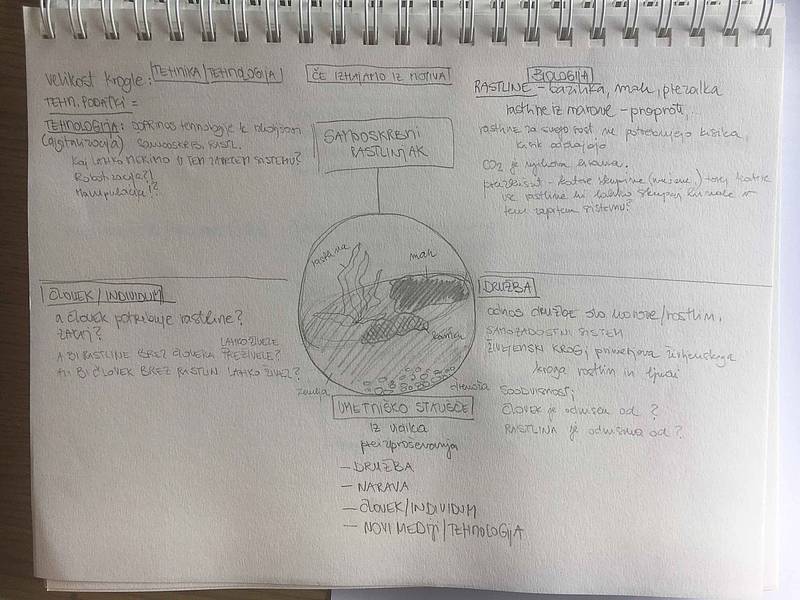 TEHNIKA/TEHNOLOGIJA
velikost krogle:
TEHN. PODATKI =
TEHNOLOGIJA: DOPRINOS tehnologije k
(digitalizacija) SAMOSKRB. RASTL.
Kaj lahko merimo v tem zaprtem sistemu?
Robotizacija?!
Manipulacija!?
ČE IZHAJAMO IZ MOTIVA
SAMOOSKRBNI
RASTLINJAK
BIOLOGIJA
RASTLINE - bazilika, mah, preralka
rastline iz narave - praproti,
rastline za svojo rast ne potrebujejo kisika,
kisik oddajajo
CO2 je njihova hrana.
- katere skupine torej katere
vse rastline bi lahko skupaj bivale v
tem zaprtem sistemu?
rastlina
mah
zemlja
drenaža
ČLOVEK/INDIVIDUM
a človek potrebuje rastline?
ZAKAJ?
LAHKO ŽIVELE
A BI RASTLINE BREZ ČLOVEKA PREŽIVELE?
ALI BI ČLOVEK BREZ RASTLIN LAHKO ŽIVEL?
DRUŽBA
odnos družbe do narave/rastlin,
SAMOZADOSTNI SISTEM
ŽIVLJENJSKI KROG; primerjava življenjskega
kroga rastlin in ljudi
SOODVISNOST;
ČLOVEK je odvisen od ?
RASTLINA je odvisna od ?
UMETNIŠKO STALIŠČE
iz vidika
preizpraševanja
- DRUŽBA
- NARAVA
- ČLOVEK/INDIVIDUM
- NOVI MEDIJI/TEHNOLOGIJA